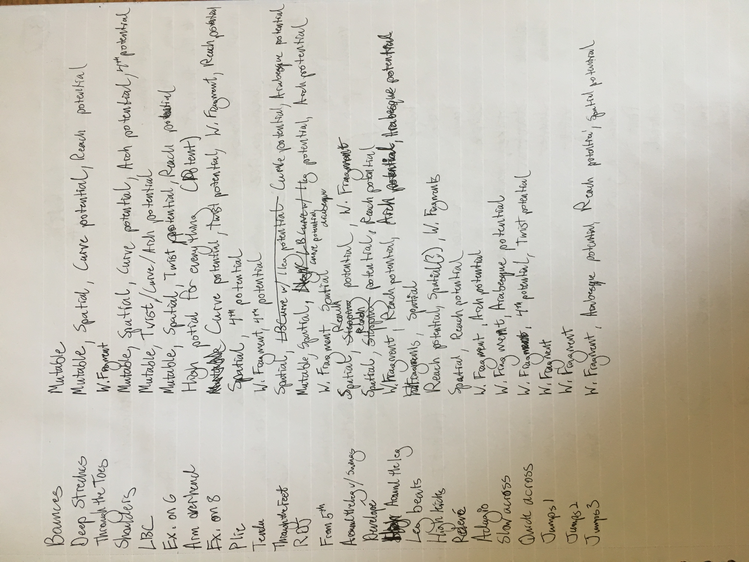 Bounces Mutable
Deep Stretches Mutable, Spatial, Curve potential, Reach potential
Through the Toes W. Fragment
Shoulders Mutable, Spatial, Curve potential, Arch potential, 4th potential
LBC Mutable, Twist, Curve/Arch potential
Ex. on 6 Mutable, Spatial, Twist potential, Reach potential
Arm overhead High potial for everything
Ex. on 8 Mutable Curve potential, Twist potential, W. Fragment, Reach potential
Plie Spatial, 4th potential
Tendu W. Fragment, 4th potential
Through the Feet Spatial, LBCurve w/ 1 leg potential Curve potential, Arabesque potential
Mutable, Spatial, LBCurve w/ 1 leg potential, Arch potential
curve potential, arabesque
From 5th W. Fragment Spatial
Around the leg w/ Swings Spatial, Reach potential, W. Fragment
Develope Spatial, potential, Reach potential
Around the leg W. Fragment, Reach potential, Arch potential, Arabesque potential
Leg beats Fragments, Spatial
High kicks Reach potential, Spatial(?), W. Fragments
Releve Spatial, Reach potential
Adagio W. Fragment, Arch potential
Slow across W. Fragment, Arabesque potential
Quick across W. Fragment, 4th potential, Twist potential
Jumps 1 W. Fragment
Jumps 2 W. Fragment
Jumps 3 W. Fragment, Arabesque potential, Reach potential, Spatial potential